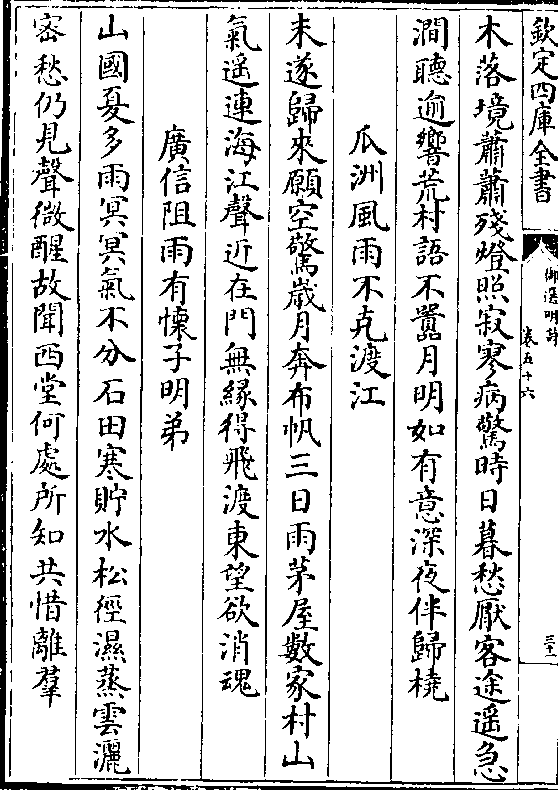 欽定四庫全書
御選明詩
卷五十六
三十一
木落境蕭蕭殘燈照寂寥病驚時日暮愁厭客途遥急
澗聽逾響荒村語不囂月明如有意深夜伴歸橈
瓜洲風雨不克渡江
未遂歸來願空驚歲月奔布帆三日雨茅屋數家村山
氣遥連海江聲近在門無緣得飛渡東望欲消魂
廣信阻雨有懷子明弟
山國夏多雨冥冥氣不分石田寒貯水松徑濕蒸雲灑
密愁仍見聲微醒故聞西堂何處所知共惜離羣